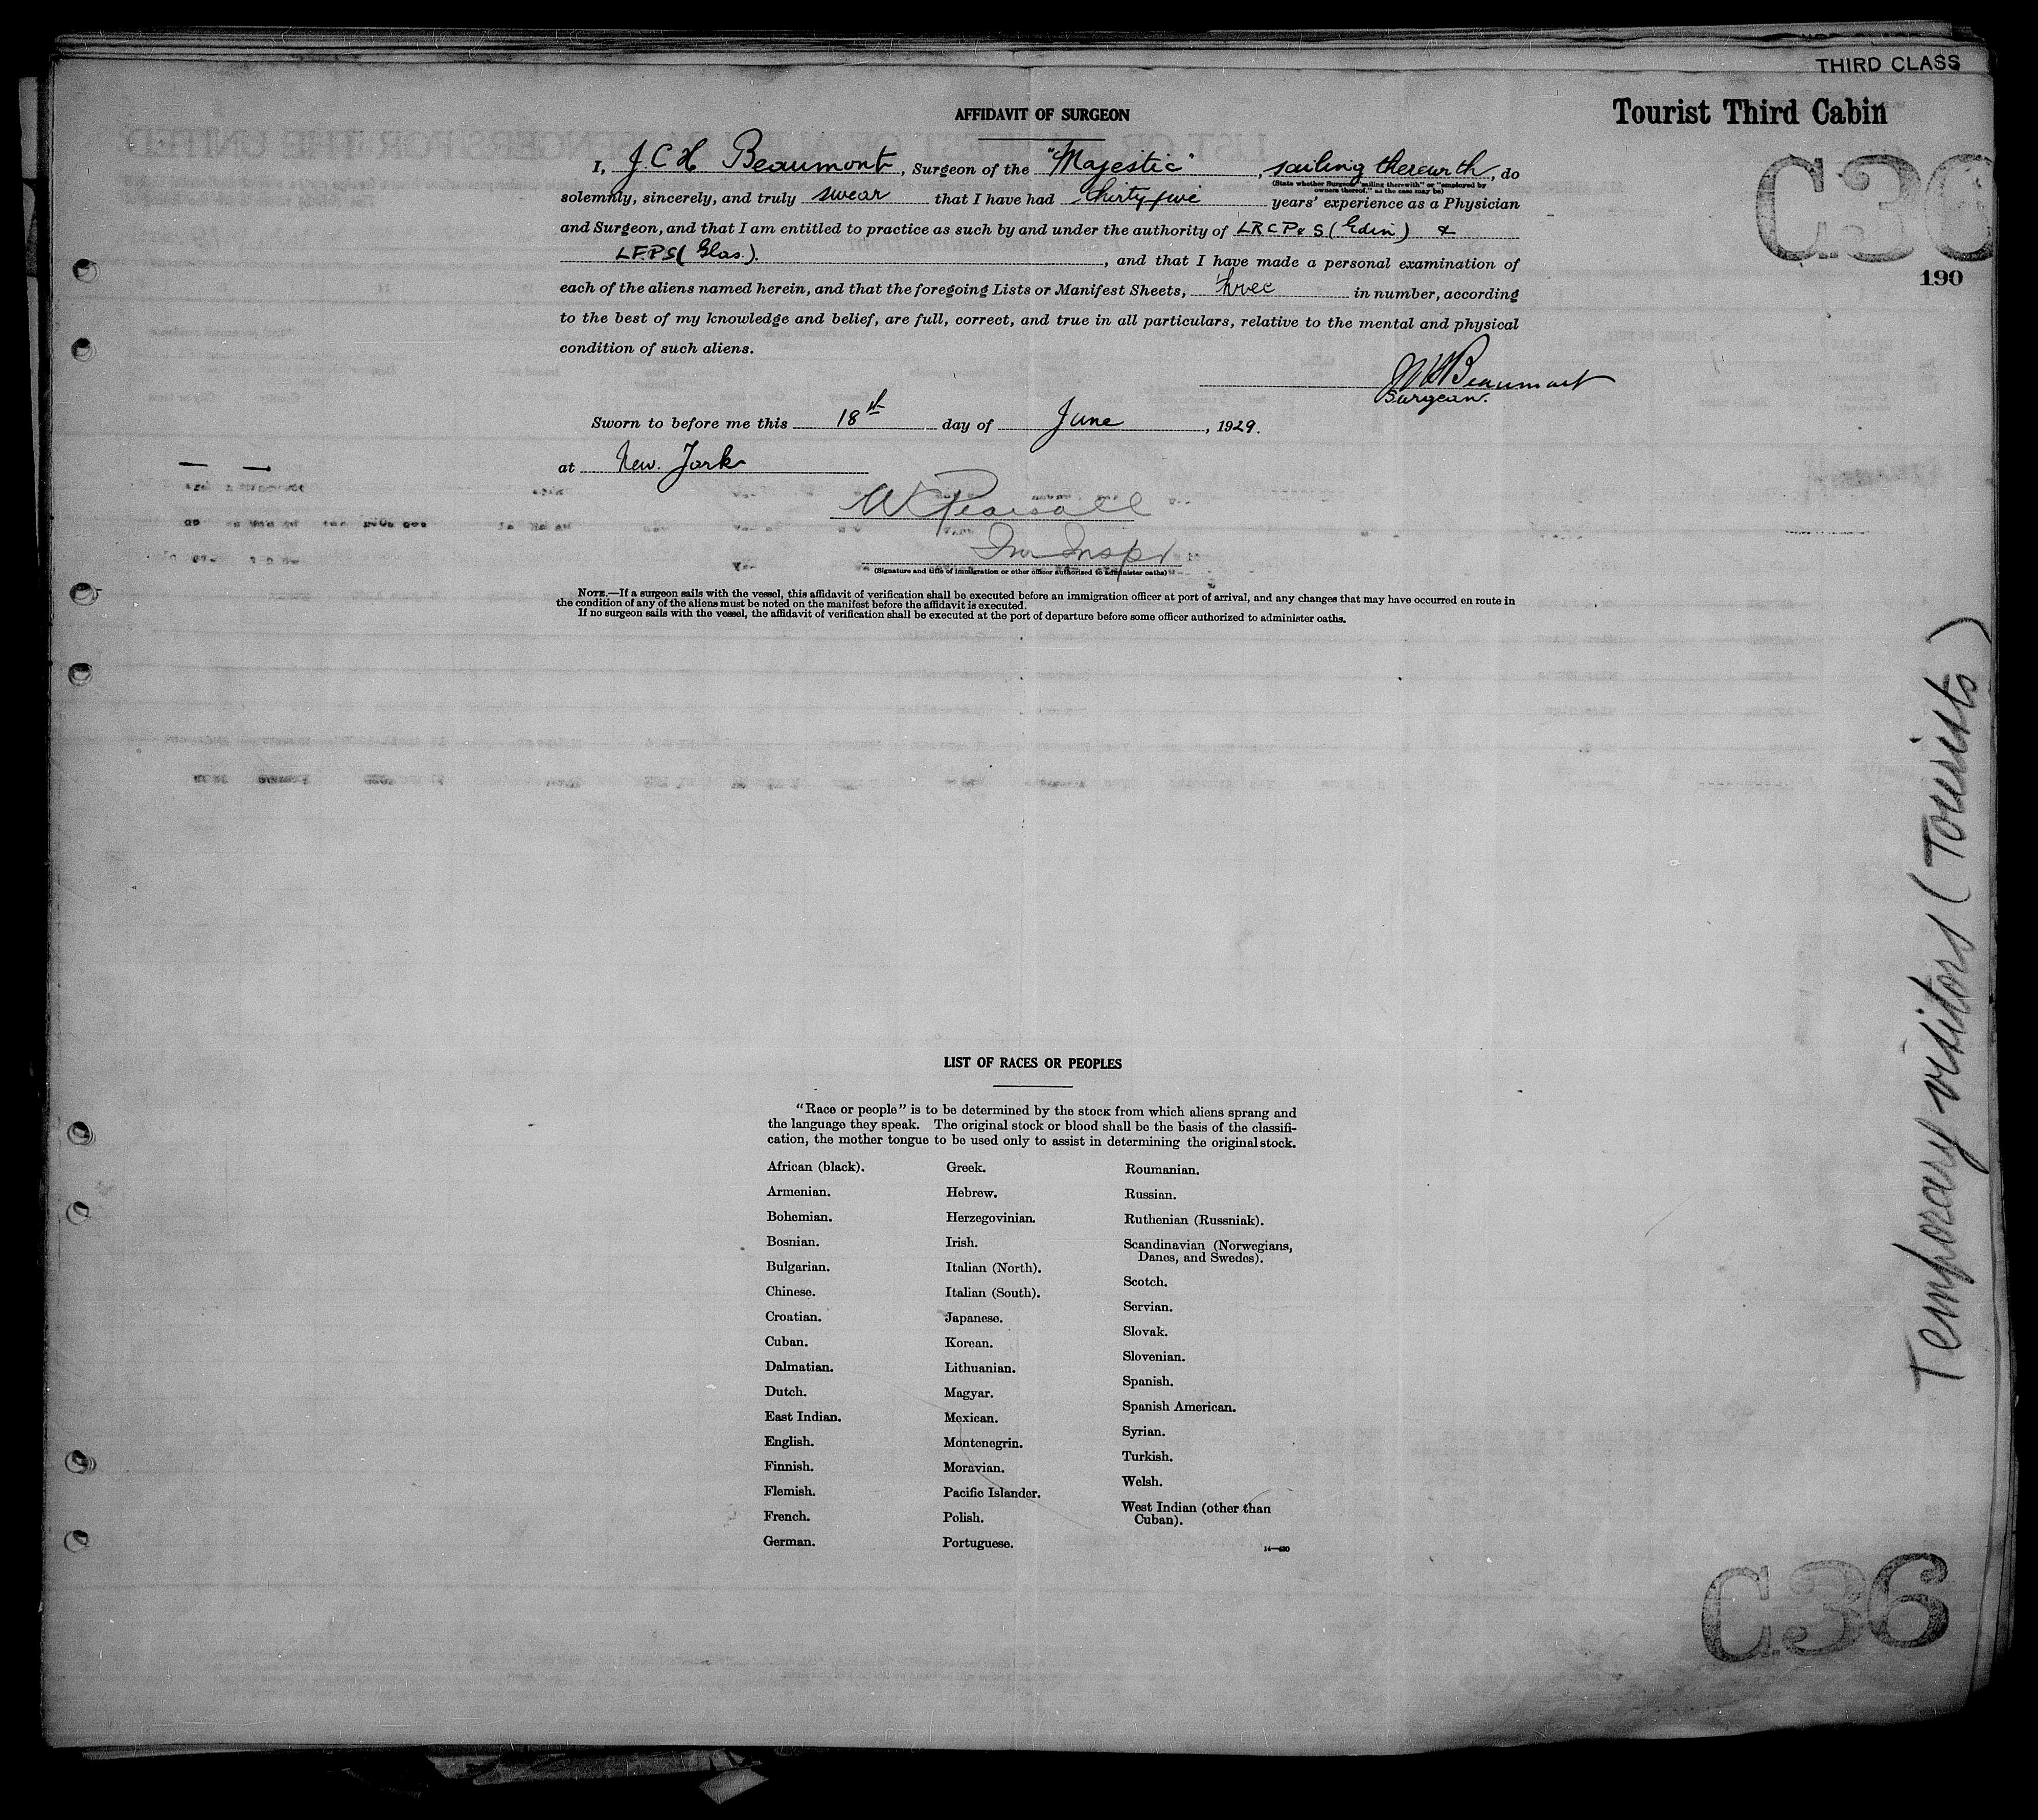 THIRD CLASS
Tourist Third Cabin
C36
190
AFFIDAVIT OF SURGEON
I, J. C. H. Beaumont, Surgeon of the "Majestic", sailing therewith, do
(State whether Surgeon "sailing therewith" or "employed by
owners thereof," as the case may be)
solemnly, sincerely, and truly swear that I have had thirty five years' experience as a Physician
and Surgeon, and that I am entitled to practice as such by and under the authority of LRCP & S (Edin) &
LFPS (Glas.), and that I have made a personal examination of
each of the aliens named herein, and that the foregoing Lists or Manifest Sheets, three in number, according
to the best of my knowledge and belief, are full, correct, and true in all particulars, relative to the mental and physical
condition of such aliens.
Beaumont
Surgeon.
Sworn to before me this 18th day of June, 1929.
at New. York
W Pearsall
Im Inspr
(Signature and title of immigration or other officer authorized to administer oaths)
NOTE.—If a surgeon sails with the vessel, this affidavit of verification shall be executed before an immigration officer at port of arrival, and any changes that may have occurred en route in
the condition of any of the aliens must be noted on the manifest before the affidavit is executed.
If no surgeon sails with the vessel, the affidavit of verification shall be executed at the port of departure before some officer authorized to administer oaths.
Temporary visitors (Tourists)
LIST OF RACES OR PEOPLES
"Race or people" is to be determined by the stock from which aliens sprang and
the language they speak. The original stock or blood shall be the basis of the classifi-
cation, the mother tongue to be used only to assist in determining the original stock.
African (black).
Armenian.
Bohemian.
Bosnian.
Bulgarian.
Chinese.
Croatian.
Cuban.
Dalmatian.
Dutch.
East Indian.
English.
Finnish.
Flemish.
French.
German.
Greek.
Hebrew.
Herzegovinian.
Irish.
Italian (North).
Italian (South).
Japanese.
Korean.
Lithuanian.
Magyar.
Mexican.
Montenegrin.
Moravian.
Pacific Islander.
Polish.
Portuguese.
Roumanian.
Russian.
Ruthenian (Russniak).
Scandinavian (Norwegians,
Danes, and Swedes).
Scotch.
Servian.
Slovak.
Slovenian.
Spanish.
Spanish American.
Syrian.
Turkish.
Welsh.
West Indian (other than
Cuban).
C36